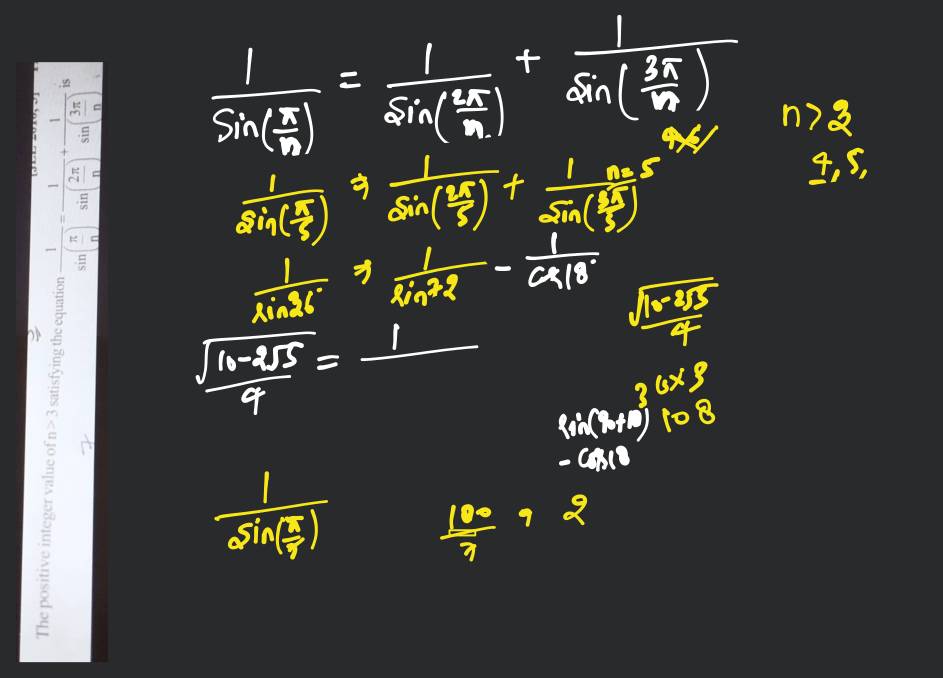 The positive integer value of n > 3 satisfying the equation 1/sin(π/n) = 1/sin(2π/n) + 1/sin(3π/n) is
7
1/Sin(π/n) = 1/Sin(2π/n) + 1/Sin(3π/n)
n>3
4, 5,
n=5
1/Sin(π/5) ⇒ 1/Sin(2π/5) + 1/Sin(3π/5)
1/sin36° ⇒ 1/sin72 - 1/cos18°
√10-2√5/4
√10-2√5/4 = 1
36×3
108
sin(90+18)
- cos18
1/Sin(π/7)
180/7 , 2